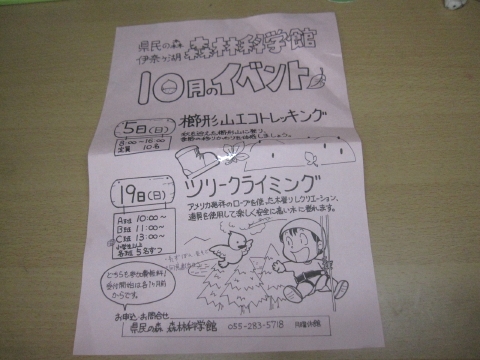 県民の森
伊奈ヶ湖
森林科学館
10月のイベント
5日(日)
8:00~16:00
定員 10名
櫛形山エコトレッキング
秋を迎えた櫛形山に登り、
季節の移りかわりを体感しましょう。
19日(日)
A班 10:00~
B班 11:00~
C班 13:00~
小学生以上
各班 5名ずつ
ツリークライミング
アメリカ発祥のロープを使った木登りレクリエーション、
道具を使用して楽しく安全に高い木に登れます。
どちらも参加費無料!
受付開始は各1ヶ月前
からです。
お申込・お問合せ
県民の森 森林科学館 055-283-5718 月曜休館